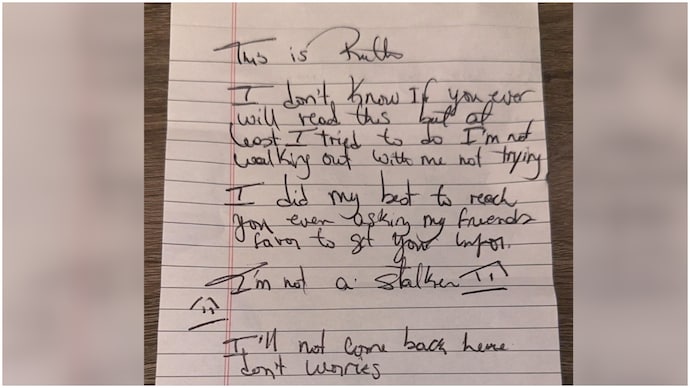 This is Ruth
I don't know If you ever
will read this but at
least I tried to do I'm not
walking out with me not trying
I did my best to reach
you even asking my friends
favor to get your infor.
I'm not a stalker
I'll not come back here
don't worries